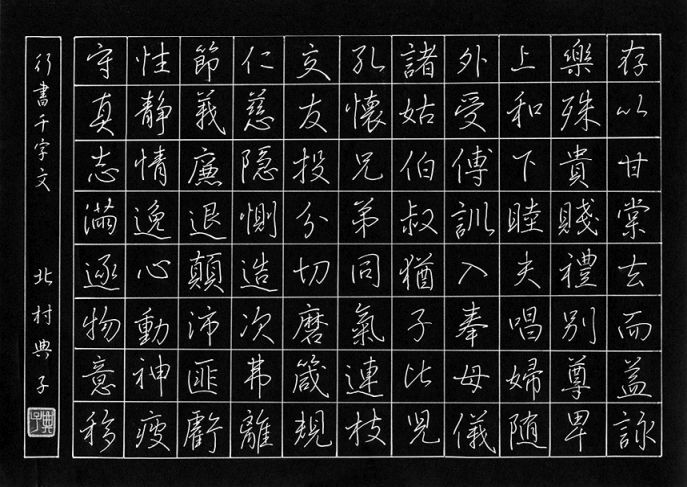 存以甘棠去而益詠
樂殊貴賤禮別尊卑
上和下睦夫唱婦随
外受傅訓入奉母儀
諸姑伯叔猶子比児
孔懐兄弟同氣連枝
交友投分切磨箴規
仁慈隠惻造次弗離
節義廉退顛沛匪虧
性静情逸心動神疲
守真志滿逐物意移
行書千字文 北村典子